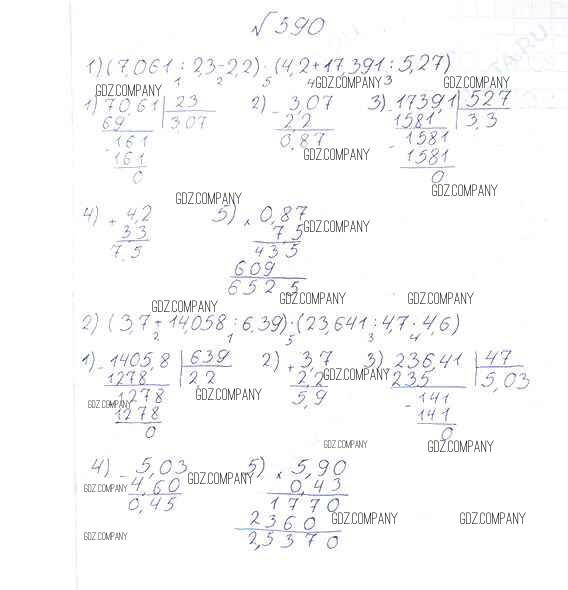 №590
1) (7,061 : 2,3 - 2,2) · (4,2 + 17,391 : 5,27)
1 2 5 4 3
GDZ.COMPANY GDZ.COMPANY GDZ.COMPANY
1) 70,61 | 23 2) - 3,07 3) - 1739,1 | 527
69 3,07 2,2 1581 3,3
- 161 0,87 - 1581
161 GDZ.COMPANY 1581
0 0
GDZ.COMPANY
GDZ.COMPANY
4) + 4,2 5) × 0,87
3,3 7,5 GDZ.COMPANY
7,5 435
609
652 5
GDZ.COMPANY GDZ.COMPANY GDZ.COMPANY
2) (3,7 + 14,058 : 6,39) · (23,641 : 4,7 - 4,6)
2 1 5 3 4
1) - 1405,8 | 639 2) + 3,7 3) 236,41 | 47
1278 2,2 2,2 GDZ.COMPANY 235 5,03
1278 GDZ.COMPANY 5,9 - 141
GDZ.COMPANY 1278 141
0 0
GDZ.COMPANY GDZ.COMPANY
4) - 5,03 5) × 5,90
GDZ.COMPANY 4,60 GDZ.COMPANY 0,43
0,45 1770
2360 GDZ.COMPANY GDZ.COMPANY
2,5370
GDZ.COMPANY